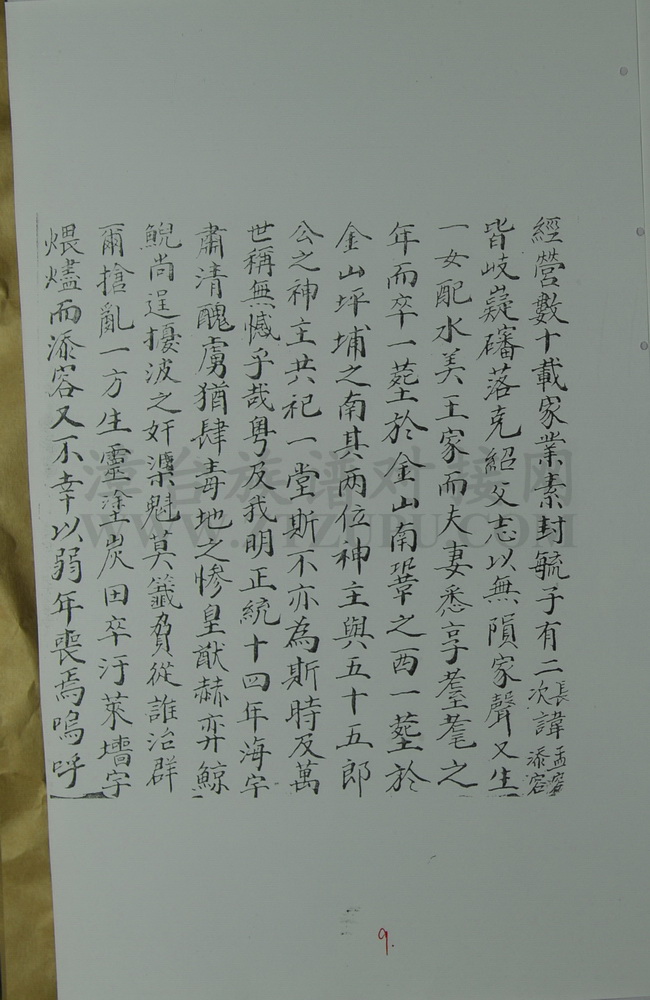 經營數十載家業素封毓子有二長次諱孟容添容
皆岐嶷磻落克紹父志以無隕家聲又生
一女配水美王家而夫妻悉享耋耄之
年而卒一塟於金山南鞏之西一塟於
金山坪埔之南其兩位神主與五十五郎
公之神主共祀一堂斯不亦為斯時及萬
世稱無憾乎哉粵及我明正統十四年海宇
肅清醜虜猶肆毒地之慘皇猷赫弈鯨
鯢尚逞擾波之奸渠魁莫籤貧從誰治群
爾搶亂一方生靈塗炭田卒汙萊墻宇
煨燼而添容又不幸以弱年喪焉嗚呼
9.
WWW.ZTZUPU.COM